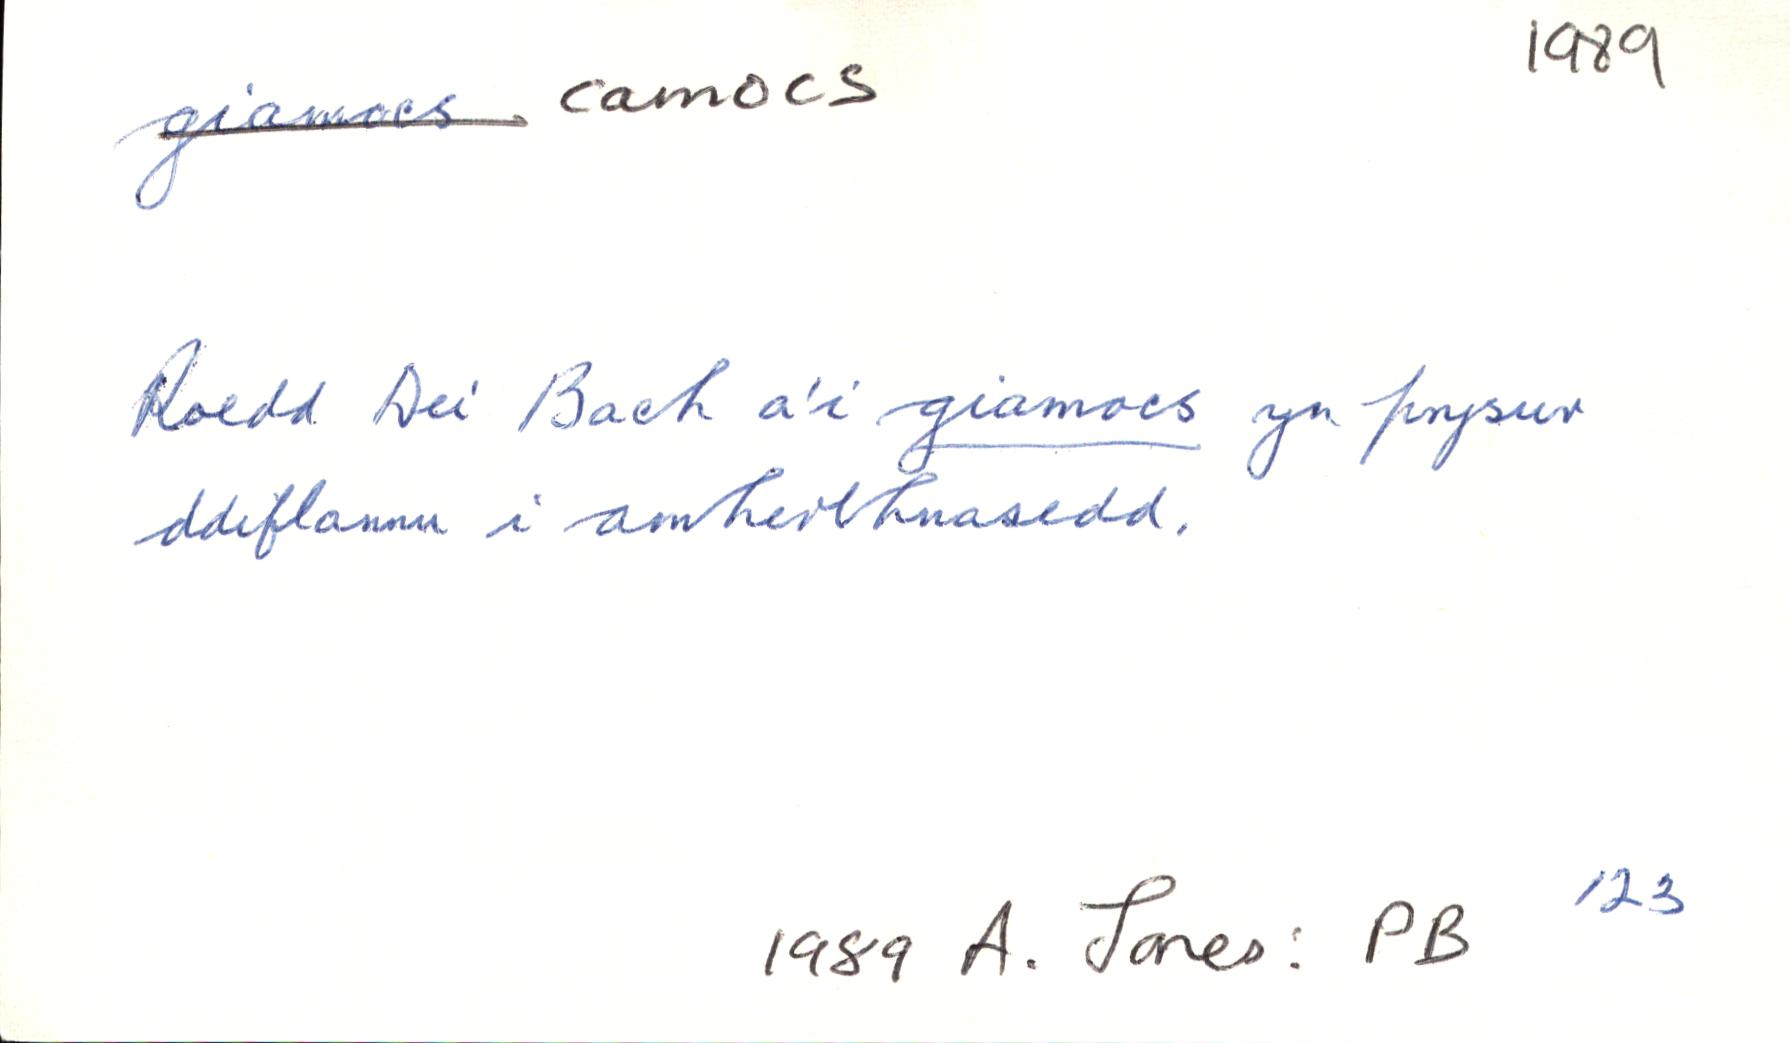 1989
giamocs camocs
Roedd Dei Bach a'i giamocs yn prysur
ddiflannu i amherthnasedd.
1989 A. Jones: PB 123